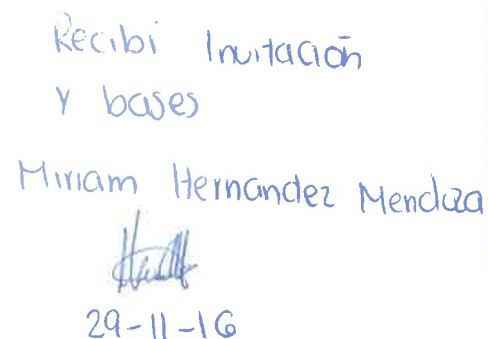 Recibi Invitación
y bases
Miriam Hernandez Mendoza
29-11-16